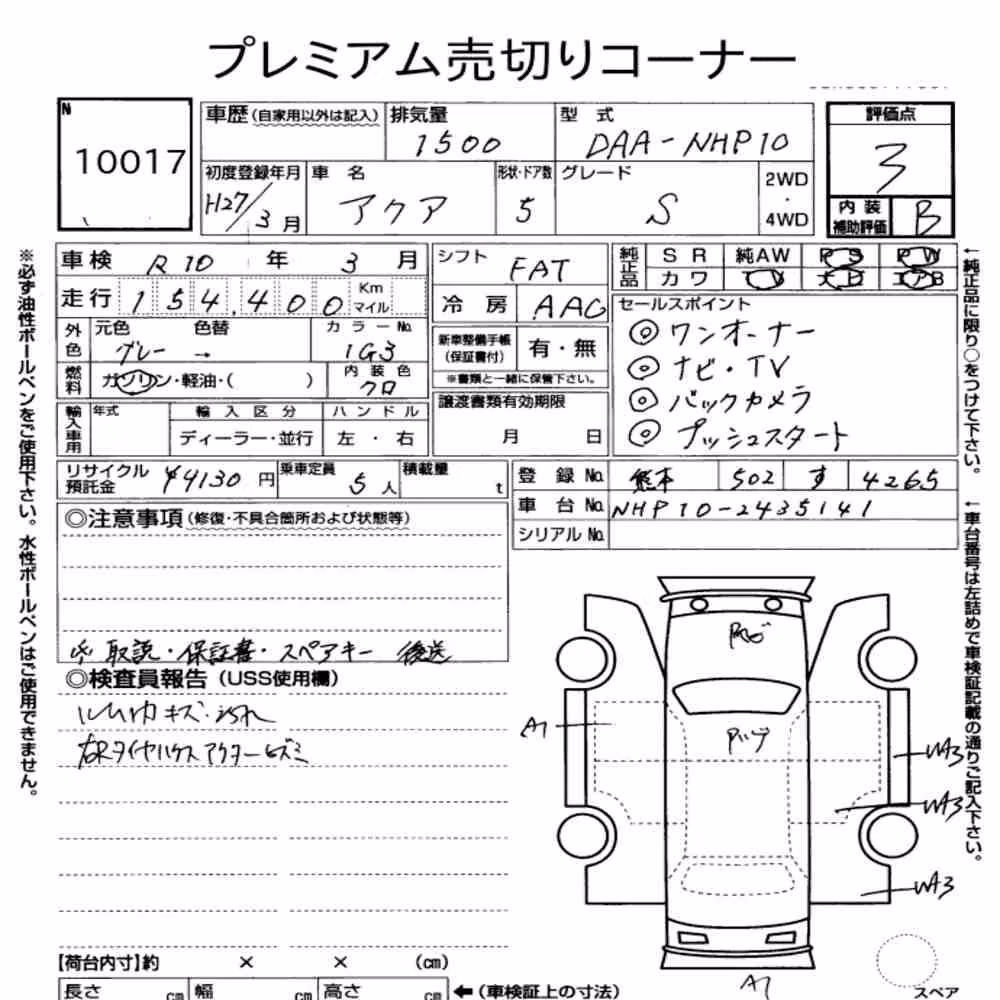 プレミアム売切りコーナー
N
10017
車歴(自家用以外は記入) 排気量 1500 型式 DAA-NHP10 評価点 3
初度登録年月 H27/3月 車名 アクア 形状・ドア数 5 グレード S 2WD・4WD 内装補助評価 B
車検 R10年 3月 シフト FAT 純正品 SR 純AW PS PW
カワ TV エアB
走行 154,400 Km マイル 冷房 AAC セールスポイント
外色 元色 グレー 色替 → カラーNo. 1G3 新車整備手帳(保証書付) 有・無 ◎ワンオーナー
燃料 ガソリン・軽油・( ) 内装色 クロ ※書類と一緒に保管下さい。 ◎ナビ・TV
輸入車用 年式 輸入区分 ハンドル 譲渡書類有効期限 ◎バックカメラ
ディーラー・並行 左・右 月 日 ◎プッシュスタート
リサイクル預託金 ¥4130円 乗車定員 5人 積載量 t 登録No. 熊本 502 す 4265
車台No. NHP10-2435141
シリアルNo.
◎注意事項(修復・不具合箇所および状態等)
取説・保証書・スペアキー 後送
◎検査員報告(USS使用欄)
A1
W43
W43
W43
A1
【荷台内寸】約 × × (cm)
長さ cm 幅 cm 高さ cm ←(車検証上の寸法)
スペア
※必ず油性ボールペンをご使用下さい。水性ボールペンはご使用できません。
←純正品に限り○をつけて下さい。
←車台番号は左詰めで車検証記載の通りご記入下さい。